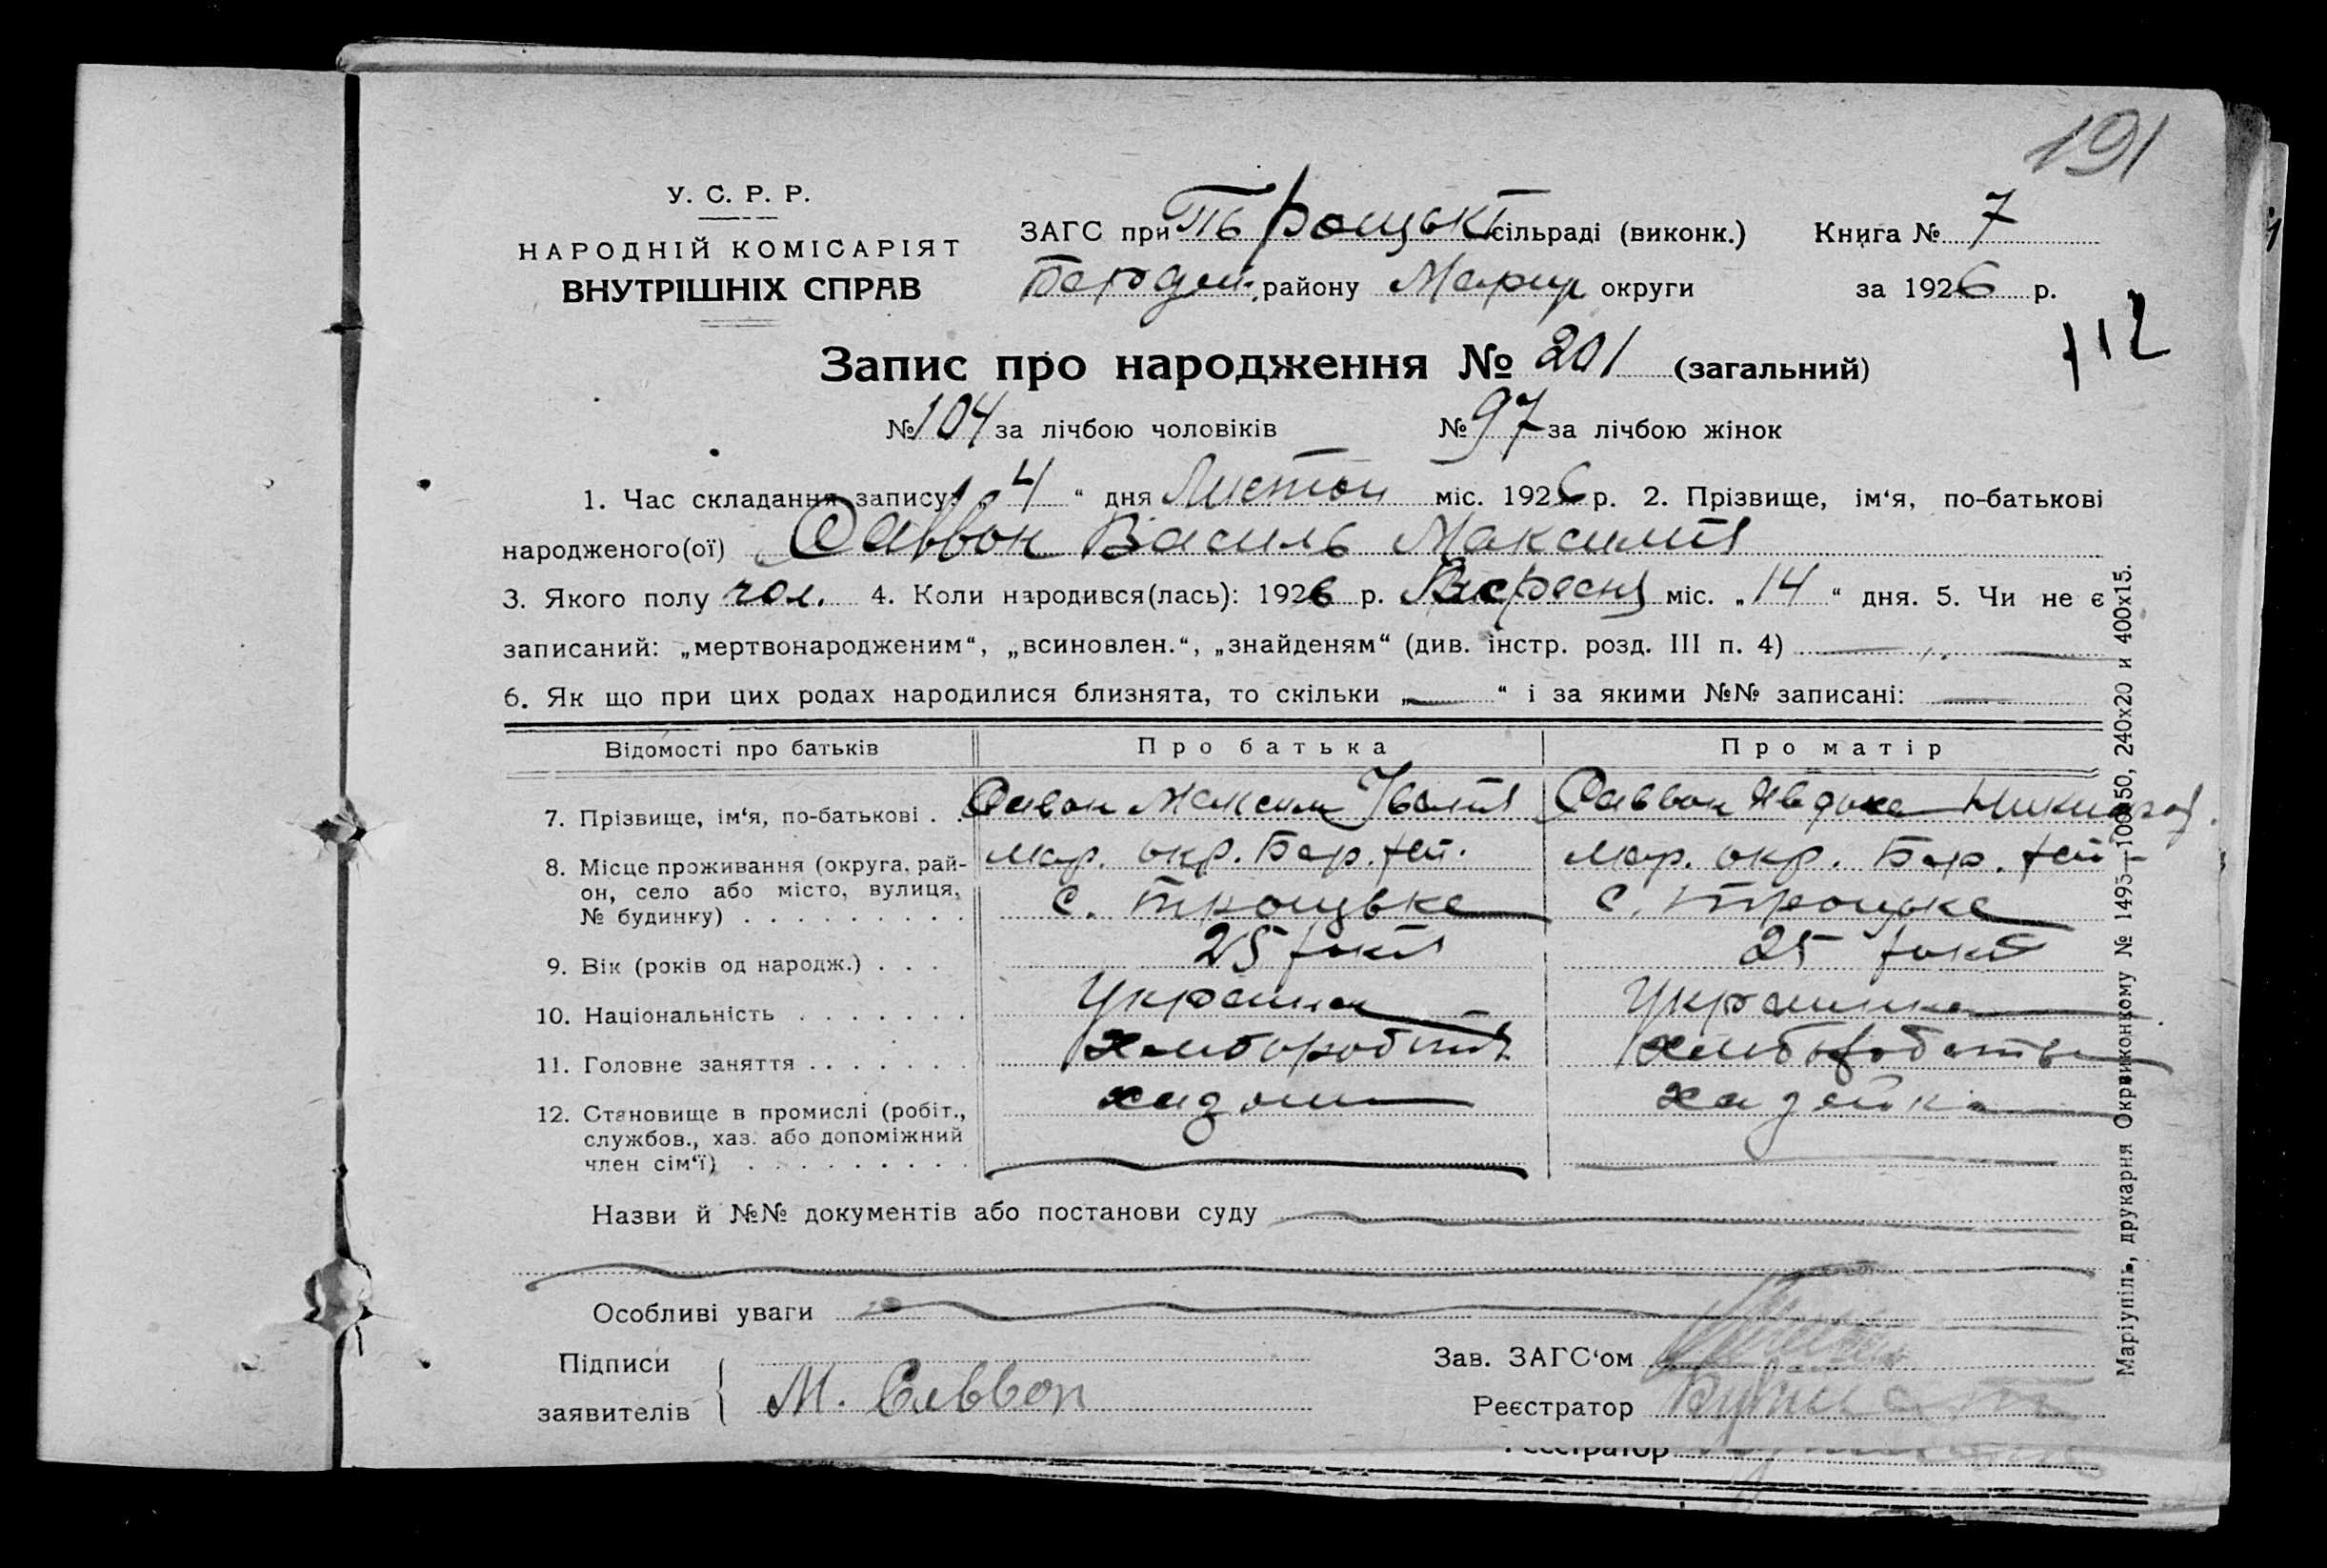 191
У. С. Р. Р.
НАРОДНІЙ КОМІСАРІЯТ
ВНУТРІШНІХ СПРАВ
ЗАГС при сільраді (виконк.) Книга № 7
району Марiуп округи за 1926 р.
112
Запис про народження № 201 (загальний)
№ 104 за лічбою чоловіків № 97 за лічбою жінок
1. Час складання запису: „4“ дня Листоп міс. 1926 р. 2. Прізвище, ім‘я, по-батькові
народженого(ої) Саввон Василь Максимов
3. Якого полу чол. 4. Коли народився(лась): 1926 р. Вересня міс. „14“ дня. 5. Чи не є
записаний: „мертвонародженим“, „всиновлен.“, „знайденям“ (див. інстр. розд. III п. 4)
6. Як що при цих родах народилися близнята, то скільки „ “ і за якими №№ записані:
Відомості про батьків Про батька Про матір
7. Прізвище, ім‘я, по-батькові . . Саввон Максим Саввон Явдоха
8. Місце проживання (округа, рай- Мар. окр. Бер. Мар. окр. Бер.
он, село або місто, вулиця, с. Троцьке с. Троцьке
№ будинку)
9. Вік (років од народж.) . . . 25 років 25 років
10. Національність Українец Українка
11. Головне заняття Хлиборобств Хлиборобство
12. Становище в промислі (робіт., хазяин хазяйка
службов., хаз. або допоміжний
член сім‘ї)
Назви й №№ документів або постанови суду
Особливі уваги
Підписи Зав. ЗАГС‘ом
заявителів М. Саввон Реєстратор
Реєстратор
Маріупіль, друкарня Окрвиконкому № 1495—100x50, 240x20 и 400x15.